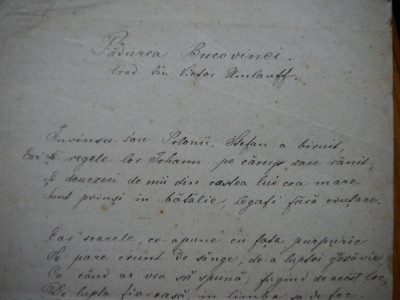 Pădurea Bucovinei.
trad. din Victor Umlauff.
Învinsu-s-au Polonii. Ștefan a biruit,
regele lor Johann pe câmp zace rănit,
douezeci de mii din oastea lui cea mare
Sunt prinși în bătălie, legați fără crutare.
Iar soarele, ce apune cu fața purpurie
Se pare crunt de sânge, de-a luptei
Ca când ar vrea să spună, fugind de acest loc,
De lupta fioroasă, în limba sa de foc